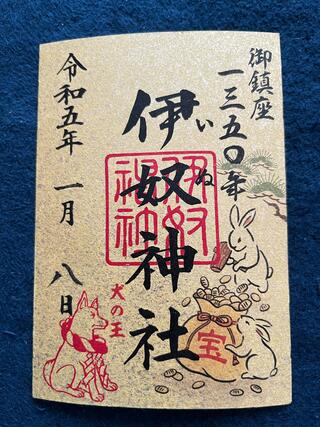 御鎮座
一三五〇年
伊奴神社
いぬ
伊奴
神社
令和五年 一月 八日
犬の王
宝